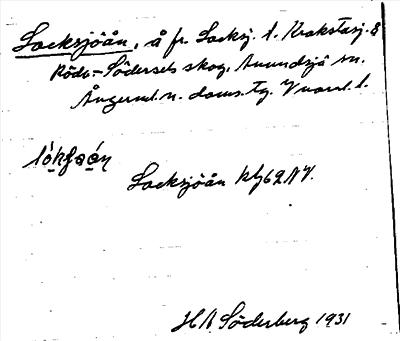 Locksjöån, å fr. Locksj. t. Krakstasj. &
Röde-Södersels skog, Anundsjö sn.
Ångerml. n. doms. tg. V norrl. l.
lók̹sǫǫ́n̹
Locksjöån ktj 62 NV.
H A Söderberg 1931